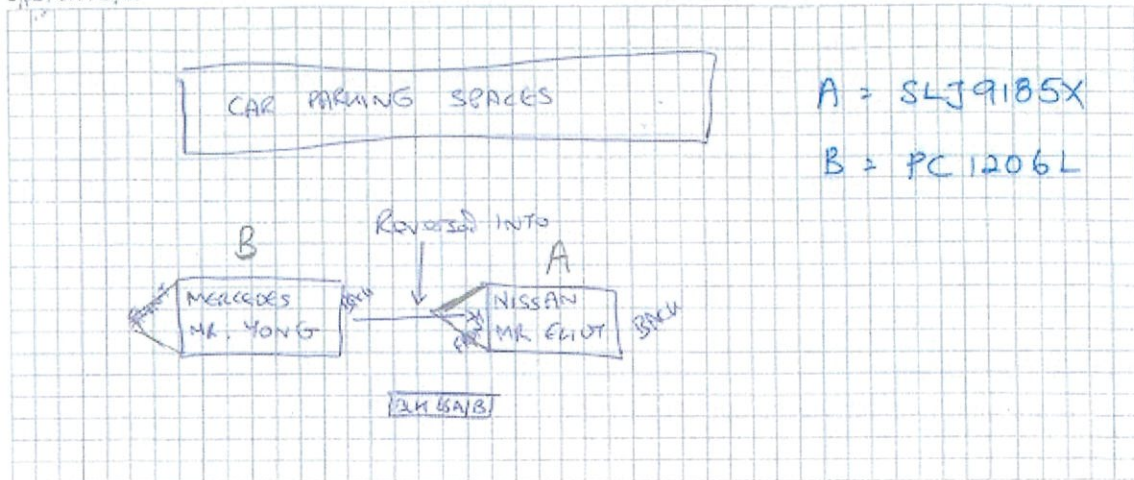 CAR PARKING SPACES
A = SLJ9185X
B = PC 1206L
REVERSED INTO
B
A
MERCEDES
MR. YONG
BACK
NISSAN
MR ELIOT
BACK